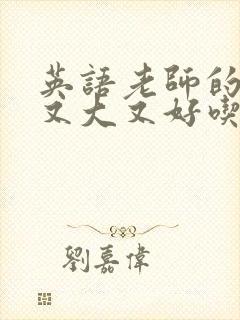 英語老師的
又大又好喫
劉嘉偉